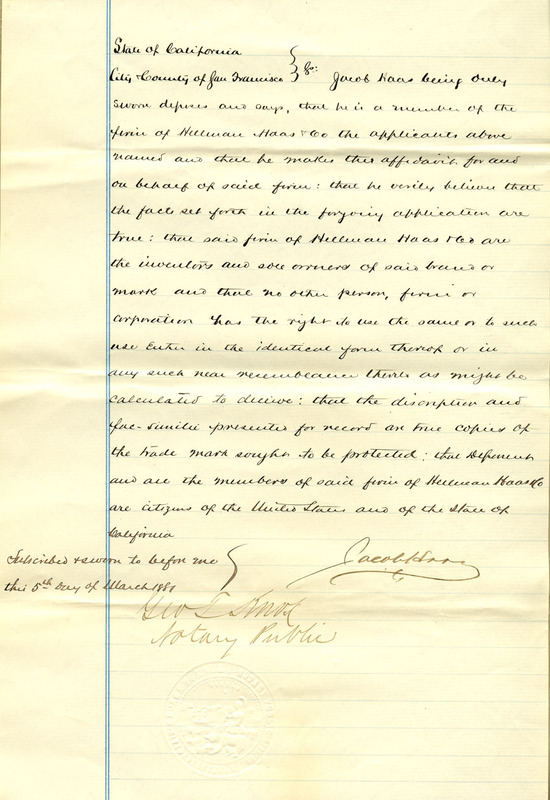 State of California
City & County of San Francisco } ss: Jacob Haas being duly
sworn deposes and says, that he is a member of the
firm of Hellman Haas & Co the applicants above
named and that he makes this affidavit for and
on behalf of said firm: that he verily believes that
the facts set forth in the forgoing application are
true: that said firm of Hellman Haas & Co are
the inventors and sole owners of said brand or
mark and that no other person, firm or
corporation has the right to use the same or to such
use Either in the identical form thereof or in
any such near resemblance thereto as might be
calculated to deceive: that the discription and
fac-similie presented for record are true copies of
the trade mark sought to be protected: that Deponent
and all the members of said firm of Hellman Haas & Co
are citizens of the United States and of the State of
California
Subscribed & sworn to before me }
this 5th Day of March 188
Jacob Haas
Geo T Knox
Notary Public